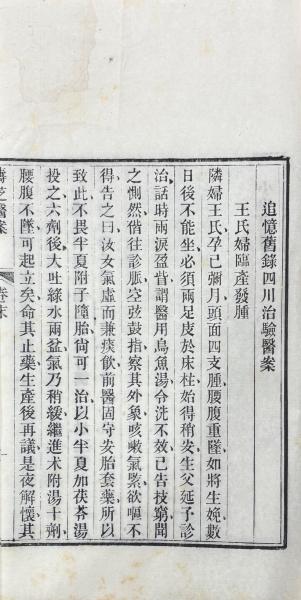 追憶舊錄四川治驗醫案
王氏婦臨產發腫
隣婦王氏孕已彌月頭面四支腫腰腹重墜如將生娩數
日後不能坐必須兩足皮於床柱始得稍安生父延予診
治話時兩淚盈眥謂醫用烏魚湯令洗不效已告技窮聞
之惻然偕往診脈空弦鼓指參其外象咳嗽氣緊欲嘔不
得告之曰汝女氣虛而兼痰飲前醫固守安胎套藥所以
致此不畏半夏附子隨胎尙可一治以小半夏加茯苓湯
投之六劑後大吐綠水兩盆氣乃稍緩繼進术附湯十劑
腰腹不墜可起立矣命其止藥生產後再議是夜解懷其
壽芝醫案
卷末